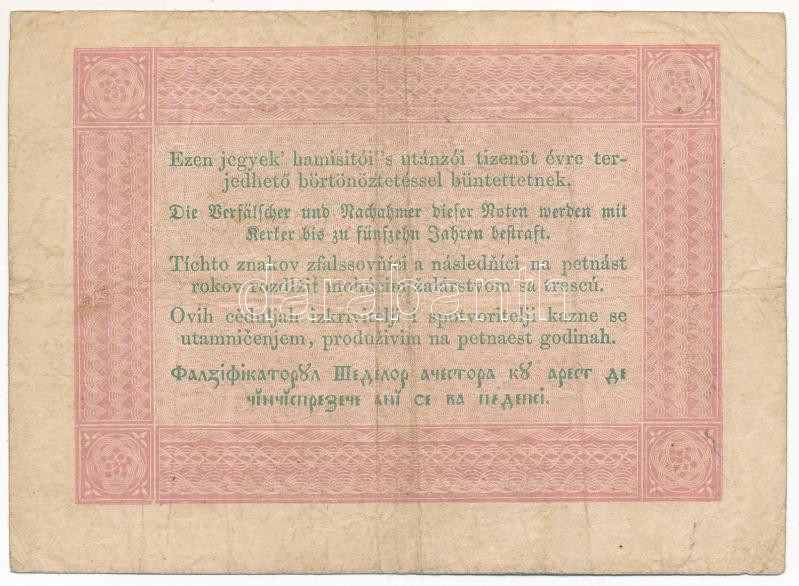 Ezen jegyek' hamisitói 's utánzói tizenöt évre ter-
jedhető börtönöztetéssel büntettetnek.
Die Verfälscher und Nachahmer dieser Noten werden mit
Kerker bis zu fünfzehn Jahren bestraft.
Tíchto znakov zfalssovňíci a následňíci na petnást
rokov rozdlžiť mohúcim žalárstvom sa trescú.
Ovih cèduljah izkrivitelji i spotvoritelji kazne se
utamničenjem, produživim na petnaest godinah.
Фалзіфікаторꙋл Шеделор ачестора кꙋ арест де
чінчіспрезече ані се ва педепсі.
darabanth